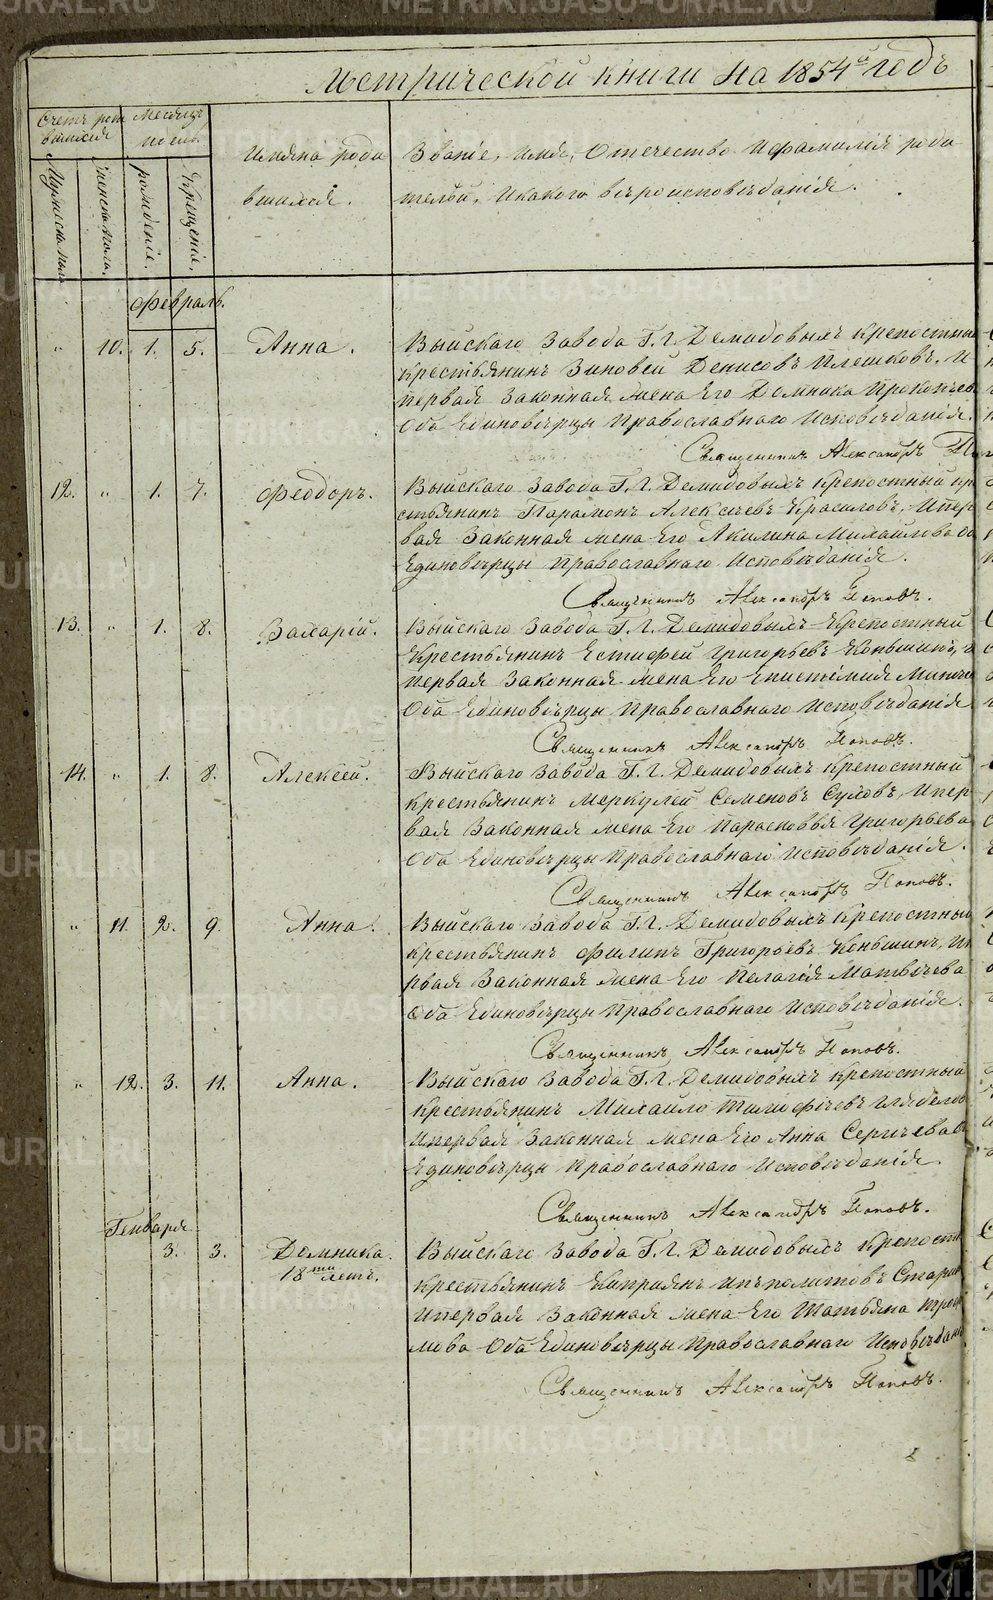 Метрической книги на 1854й годъ
Счетъ родившихся
Мѣсяцъ и день.
Мужеска пола
Женска пола.
рожденіе.
Крещеніе.
Имяна родившихся.
Званіе, Имя, Отечество и фамилія роди
телей, и какого вѣроисповѣданія.
Февраль.
" 10. 1. 5. Анна. Выйскаго завода Г. Г. Демидовыхъ крепостный
крестьянинъ Зиновей Денисовъ Плешковъ, и
первая законная жена Его Домника Прокопьев
Оба Единовѣрцы Православнаго Исповѣданія.
Священникъ Александръ Поп
12. " 1. 7. Феодоръ. Выйскаго завода Г. Г. Демидовыхъ крепостный кр
стьянинъ Парамонъ Алексѣевъ Красиловъ, и пер
вая законная жена Его Акилина Михайлова Оба
Единовѣрцы Православнаго Исповѣданія.
Священникъ Александръ Поповъ.
13. " 1. 8. Захарій. Выйскаго завода Г. Г. Демидовыхъ крепостный
крестьянинъ Естифей Григорьевъ Коньшинъ, и
первая законная жена Его Епистимия
Оба Единовѣрцы Православнаго Исповѣданія
Священникъ Александръ Поповъ.
14. " 1. 8. Алексѣй. Выйскаго завода Г. Г. Демидовыхъ крепостный
крестьянинъ Меркулей Семеновъ Суховъ, и пер
вая законная жена Его Парасковья Григорьева
Оба Единовѣрцы Православнаго Исповѣданія.
Священникъ Александръ Поповъ.
" 11. 2. 9. Анна. Выйскаго завода Г. Г. Демидовыхъ крепостный
крестьянинъ Филипъ Григорьевъ Коньшинъ, и пе
рвая законная жена Его Пелагія Матвѣева
Оба Единовѣрцы Православнаго Исповѣданія.
Священникъ Александръ Поповъ.
" 12. 3. 11. Анна. Выйскаго завода Г. Г. Демидовыхъ крепостный
крестьянинъ Михайло Тимофѣевъ
и первая законная жена Его Анна Сергѣева
Единовѣрцы Православнаго Исповѣданія.
Священникъ Александръ Поповъ.
Генваря
3. 3. Домника. Выйскаго завода Г. Г. Демидовыхъ крепостн
18ти лѣтъ. крестьянинъ Кипріянъ Ипполитовъ
и первая законная жена Его Татьяна Трофи
мова Оба Единовѣрцы Православнаго Исповѣдан
Священникъ Александръ Поповъ.
METRIKI.GASO-URAL.RU